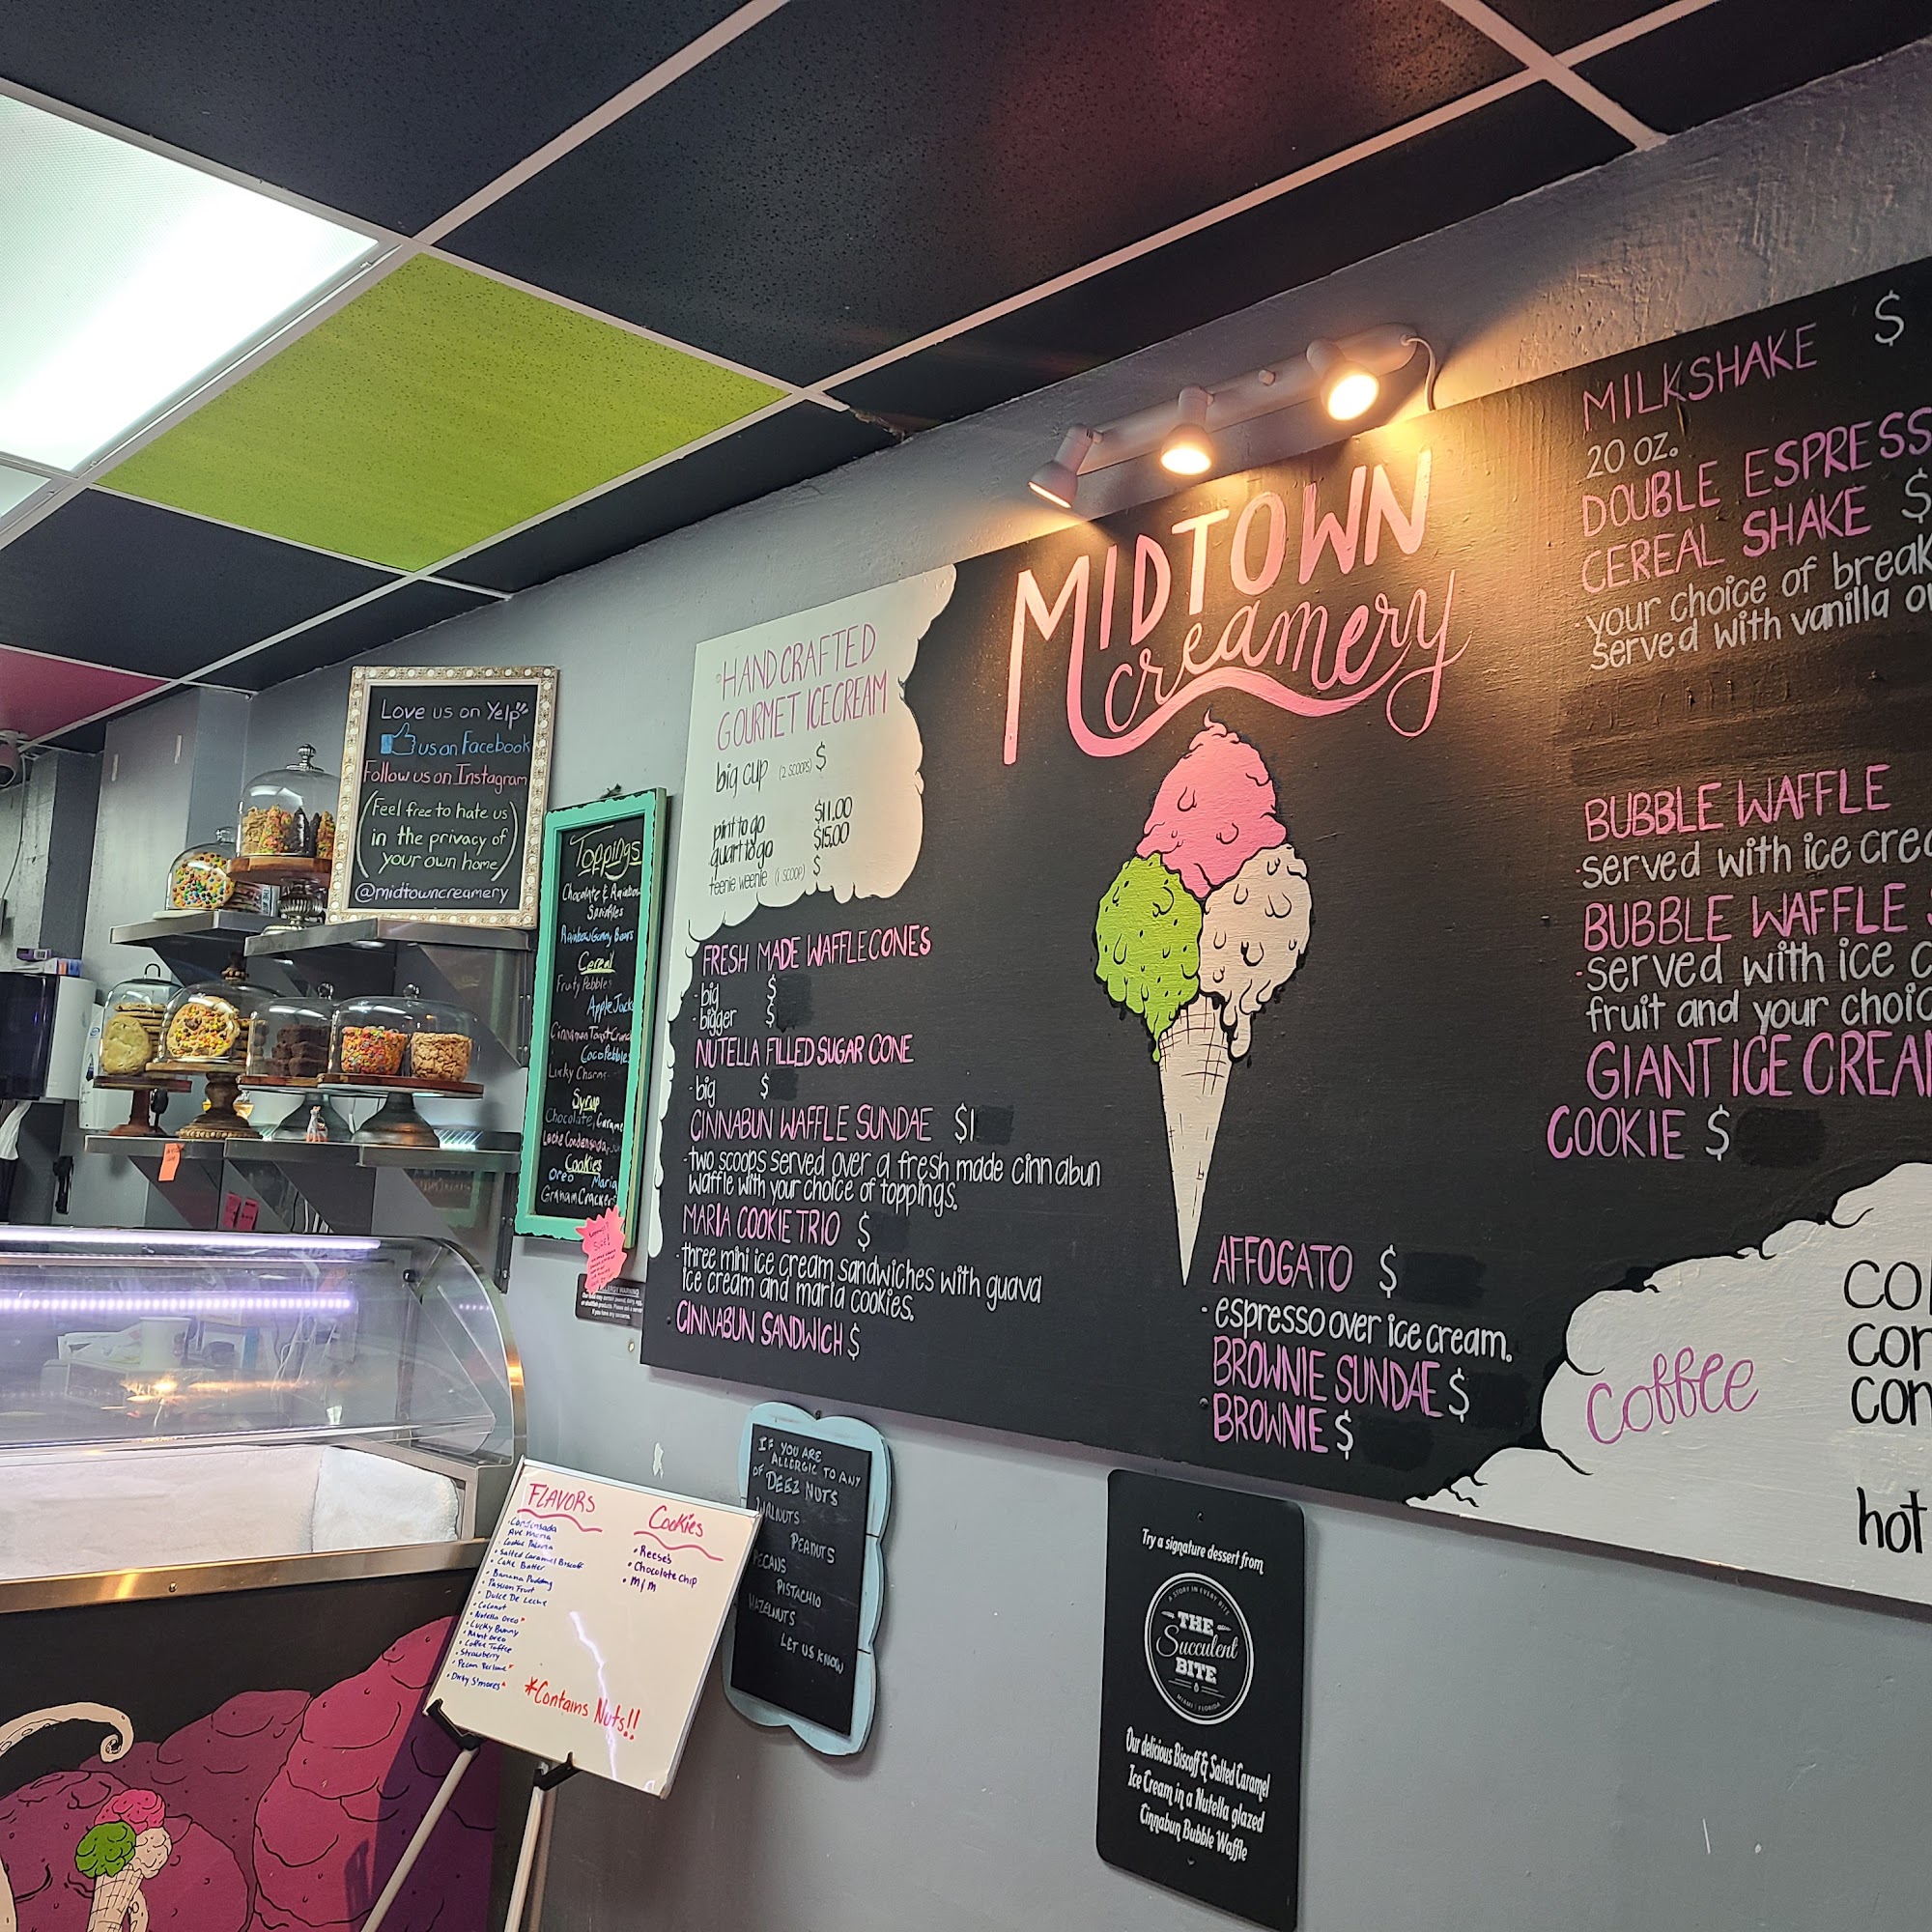 Love us on Yelp
us on Facebook
Follow us on Instagram
(Feel free to hate us
in the privacy of
your own home)
@midtowncreamery
Toppings
Chocolate & Rainbow
Sprinkles
Rainbow Gummy Bears
Cereal
Fruity Pebbles
Apple Jacks
Cinnamon Toast Crunch
Coco Pebbles
Lucky Charms
Syrup
Chocolate, Carame
Leche Condensada
Cookies
Oreo Maria
Graham Crackers
ALLERGY WARNING
HANDCRAFTED
GOURMET ICECREAM
big cup (2 SCOOPS) $
pint to go $11.00
quart to go $15.00
teenie weenie (1 SCOOP) $
FRESH MADE WAFFLECONES
-big $
-bigger $
NUTELLA FILLED SUGAR CONE
-big $
CINNABUN WAFFLE SUNDAE $1
-two scoops served over a fresh made cinnabun
waffle with your choice of toppings.
MARIA COOKIE TRIO $
-three mini ice cream sandwiches with guava
ice cream and maria cookies.
CINNABUN SANDWICH $
MIDTOWN
creamery
AFFOGATO $
-espresso over ice cream.
BROWNIE SUNDAE $
BROWNIE $
MILKSHAKE $
20 oz.
DOUBLE ESPRESS
CEREAL SHAKE $
-your choice of break
served with vanilla or
BUBBLE WAFFLE
-served with ice crea
BUBBLE WAFFLE
-served with ice c
fruit and your choic
GIANT ICE CREAM
COOKIE $
coffee
col
cor
con
hot
FLAVORS
• Condensada
Ave Maria
• Cookie Paloma
• Salted Caramel Biscoff
• Cake Batter
• Banana Pudding
• Passion Fruit
• Dulce De Leche
• Coconut
• Nutella Oreo*
• Lucky Bunny
• Mint Oreo
• Coffee Toffee
• Strawberry
• Pecan Praline*
• Dirty S'mores*
Cookies
• Reese's
• Chocolate chip
• M/M
*Contains Nuts!!
IF YOU ARE
ALLERGIC TO ANY
OF DEEZ NUTS
WALNUTS
PEANUTS
PECANS
PISTACHIO
HAZELNUTS
LET US KNOW
Try a signature dessert from
A STORY IN EVERY BITE
THE
Succulent
BITE
MIAMI | FLORIDA
Our delicious Biscoff & Salted Caramel
Ice Cream in a Nutella glazed
Cinnabun Bubble Waffle